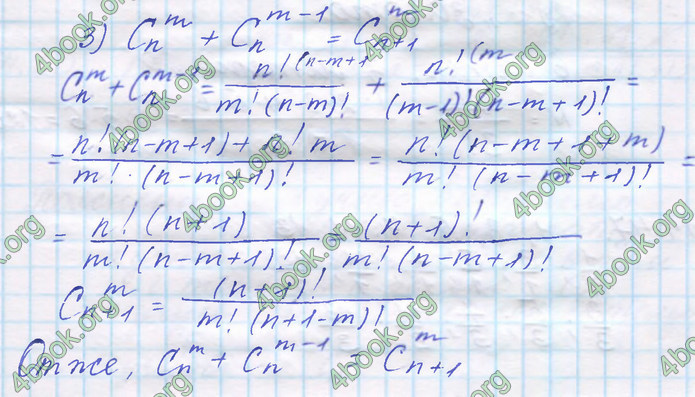 3) C_n^m + C_n^{m-1} = C_{n+1}^m
C_n^m + C_n^{m-1} = \frac{n!^{(n-m+1}}{m!(n-m)!} + \frac{n!^{(m}}{(m-1)!(n-m+1)!} =
= \frac{n!(n-m+1)+n!m}{m!·(n-m+1)!} = \frac{n!(n-m+1+m)}{m!(n-m+1)!} =
= \frac{n!(n+1)}{m!(n-m+1)!} = \frac{(n+1)!}{m!(n-m+1)!}
C_{n+1}^m = \frac{(n+1)!}{m!(n+1-m)!}
Отже, C_n^m + C_n^{m-1} = C_{n+1}^m
4book.org